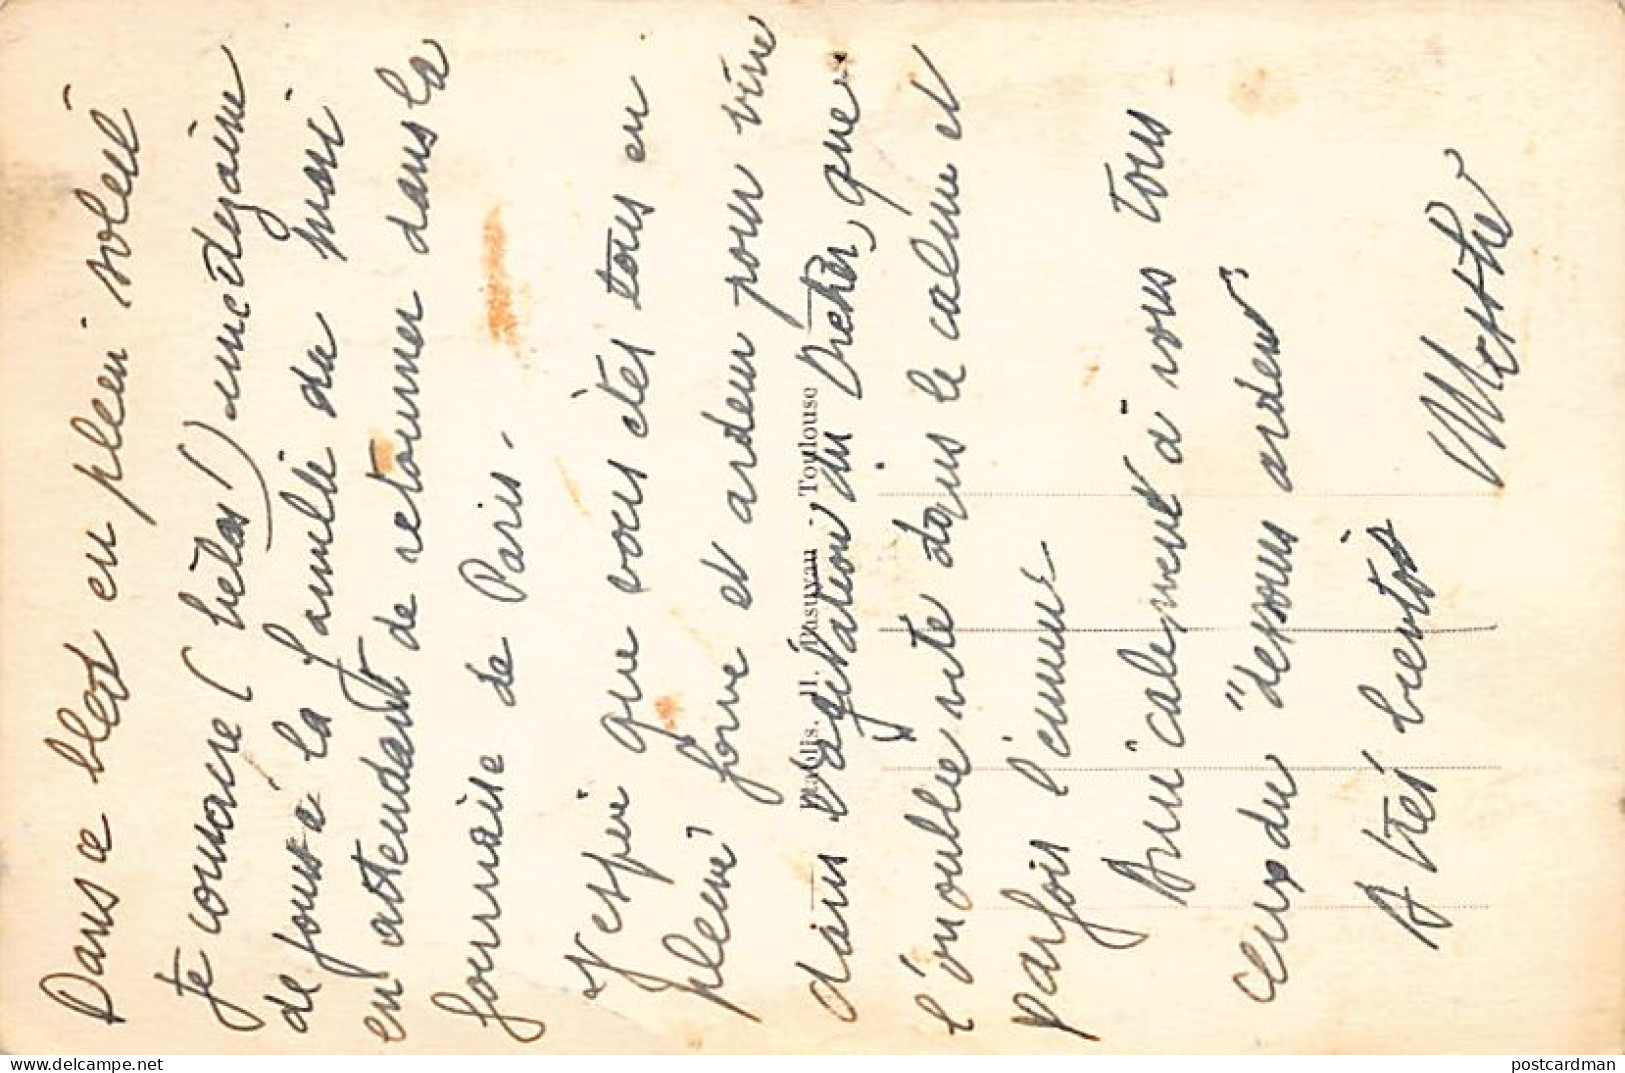 Dans ce bled en plein soleil
je consacre (hèlas!) une dizaine
de jours à la famille du mari
en attendant de retourner dans la
fournaise de Paris.
J'espère que vous êtes tous en
pleine forme et ardeur pour vivre
dans l'agitation du Dicher, que
l'on oublie vite dans le calme et
parfois l'ennui
Amicalement à vous tous
ceux du "dessous ardeur"
A très bientôt
Toulouse
www.delcampe.net
postcardman